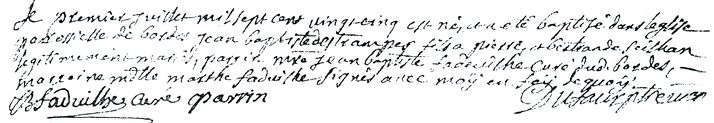 Le premier juillet mil sept cent vingt cinq est né, et a eté baptisé dans leglise
parroissielle de bordes jean baptiste destrampes fils a pierre, et bertrande seilhan
legitimement mariés, parrin mre jean baptiste faduilhe curé dud. bordes, —
marraine mdlle marthe faduilhe signés avec moy en foy dequoy
faduilhe curé parrin Dufaur ptre